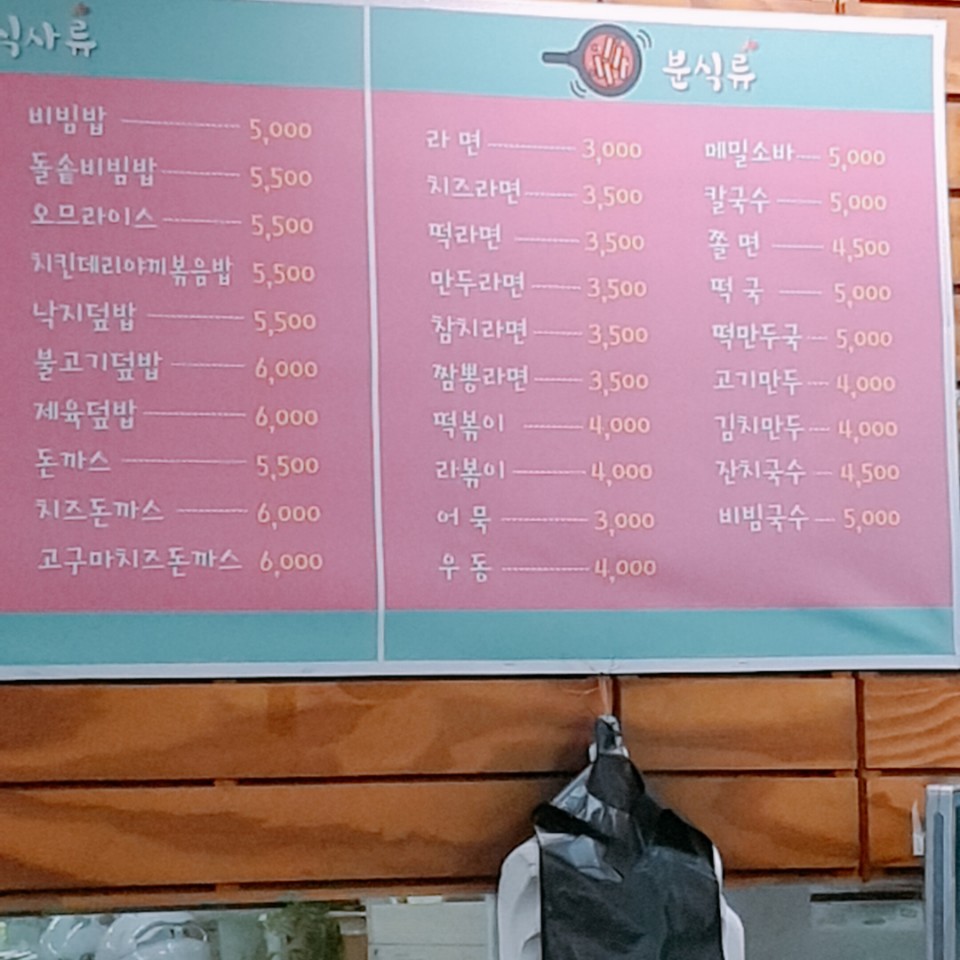 식사류
비빔밥 5,000
돌솥비빔밥 5,500
오므라이스 5,500
치킨데리야끼볶음밥 5,500
낙지덮밥 5,500
불고기덮밥 6,000
제육덮밥 6,000
돈까스 5,500
치즈돈까스 6,000
고구마치즈돈까스 6,000
분식류
라면 3,000
치즈라면 3,500
떡라면 3,500
만두라면 3,500
참치라면 3,500
짬뽕라면 3,500
떡볶이 4,000
라볶이 4,000
어묵 3,000
우동 4,000
메밀소바 5,000
칼국수 5,000
쫄면 4,500
떡국 5,000
떡만두국 5,000
고기만두 4,000
김치만두 4,000
잔치국수 4,500
비빔국수 5,000